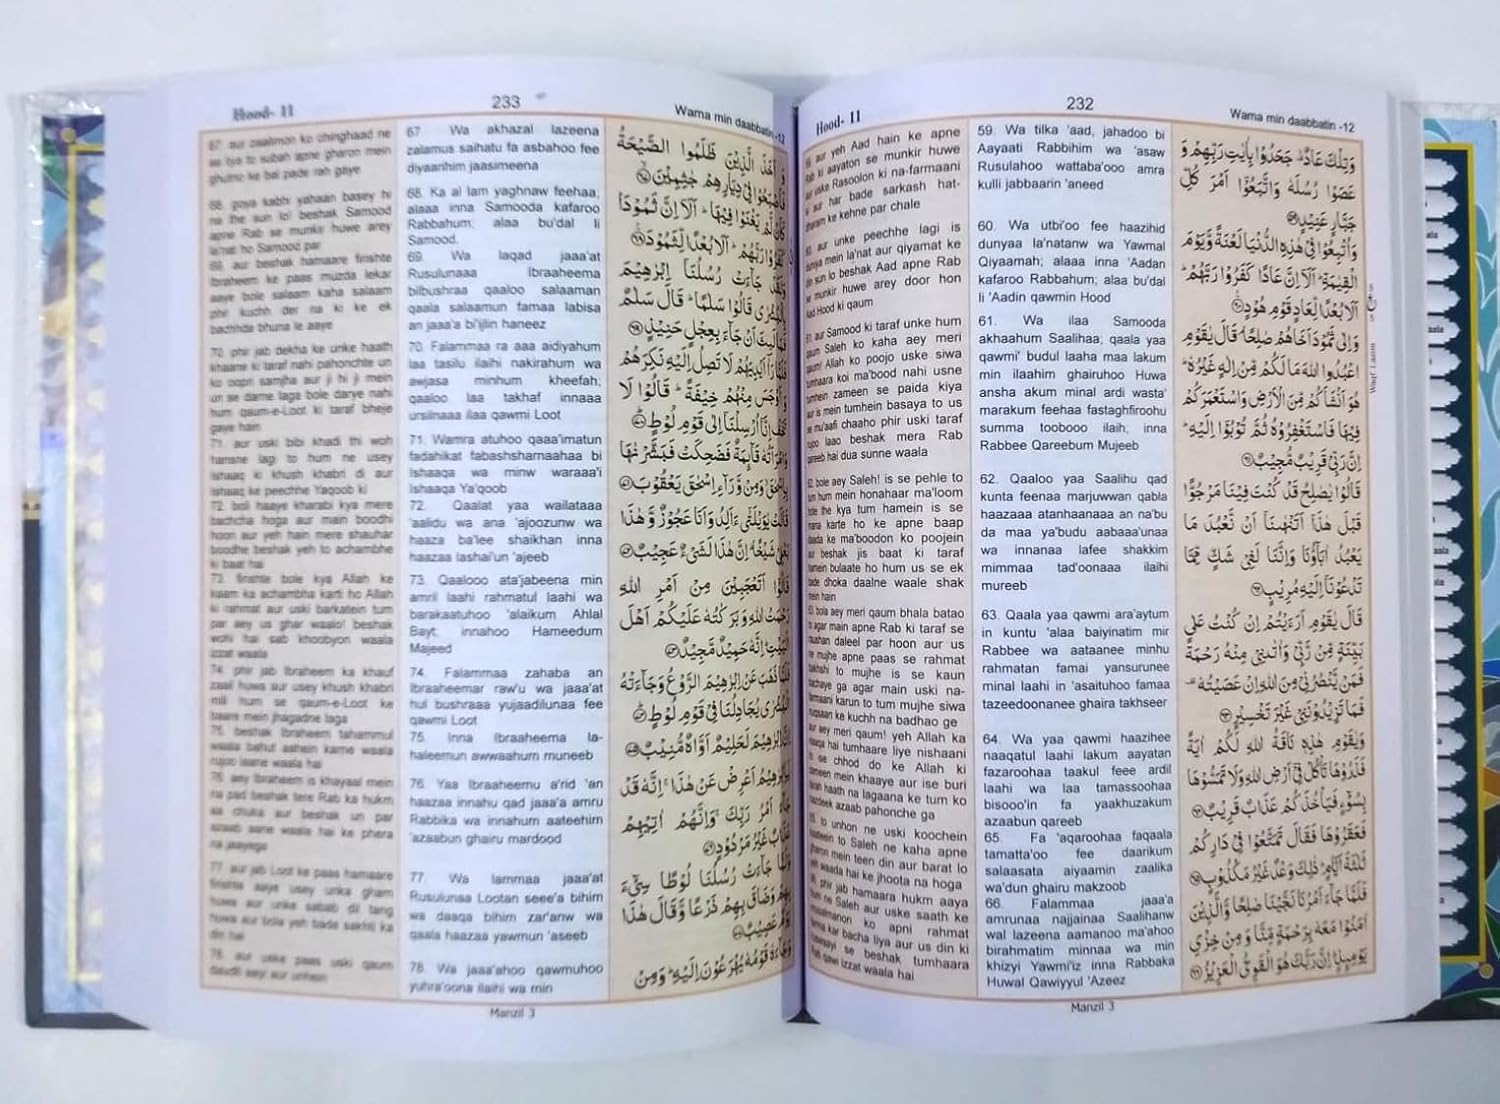 232
Hood- 11
Wama min daabbatin -12
وَتِلْكَ عَادٌ جَحَدُوا بِاٰيٰتِ رَبِّهِمْ وَ
عَصَوْا رُسُلَهٗ وَاتَّبَعُوْٓا اَمْرَ كُلِّ
جَبَّارٍ عَنِيْدٍ
وَاُتْبِعُوْا فِيْ هٰذِهِ الدُّنْيَا لَعْنَةً وَّيَوْمَ
الْقِيٰمَةِ ۗ اَلَآ اِنَّ عَادًا كَفَرُوْا رَبَّهُمْ
اَلَا بُعْدًا لِّعَادٍ قَوْمِ هُوْدٍ
وَاِلٰى ثَمُوْدَ اَخَاهُمْ صٰلِحًا ۘ قَالَ يٰقَوْمِ
اعْبُدُوا اللّٰهَ مَا لَكُمْ مِّنْ اِلٰهٍ غَيْرُهٗ
هُوَ اَنْشَاَكُمْ مِّنَ الْاَرْضِ وَاسْتَعْمَرَكُمْ
فِيْهَا فَاسْتَغْفِرُوْهُ ثُمَّ تُوْبُوْٓا اِلَيْهِ
اِنَّ رَبِّيْ قَرِيْبٌ مُّجِيْبٌ
قَالُوْا يٰصٰلِحُ قَدْ كُنْتَ فِيْنَا مَرْجُوًّا
قَبْلَ هٰذَآ اَتَنْهٰىنَآ اَنْ نَّعْبُدَ مَا
يَعْبُدُ اٰبَآؤُنَا وَاِنَّنَا لَفِيْ شَكٍّ مِّمَّا
تَدْعُوْنَآ اِلَيْهِ مُرِيْبٍ
قَالَ يٰقَوْمِ اَرَءَيْتُمْ اِنْ كُنْتُ عَلٰى
بَيِّنَةٍ مِّنْ رَّبِّيْ وَاٰتٰىنِيْ مِنْهُ رَحْمَةً
فَمَنْ يَّنْصُرُنِيْ مِنَ اللّٰهِ اِنْ عَصَيْتُهٗ
فَمَا تَزِيْدُوْنَنِيْ غَيْرَ تَخْسِيْرٍ
وَيٰقَوْمِ هٰذِهٖ نَاقَةُ اللّٰهِ لَكُمْ اٰيَةً
فَذَرُوْهَا تَأْكُلْ فِيْٓ اَرْضِ اللّٰهِ وَلَا تَمَسُّوْهَا
بِسُوْٓءٍ فَيَأْخُذَكُمْ عَذَابٌ قَرِيْبٌ
فَعَقَرُوْهَا فَقَالَ تَمَتَّعُوْا فِيْ دَارِكُمْ
ثَلٰثَةَ اَيَّامٍ ذٰلِكَ وَعْدٌ غَيْرُ مَكْذُوْبٍ
فَلَمَّا جَآءَ اَمْرُنَا نَجَّيْنَا صٰلِحًا وَّالَّذِيْنَ
اٰمَنُوْا مَعَهٗ بِرَحْمَةٍ مِّنَّا وَمِنْ خِزْيِ
يَوْمِئِذٍ اِنَّ رَبَّكَ هُوَ الْقَوِيُّ الْعَزِيْزُ
59. Wa tilka 'aad, jahadoo bi
Aayaati Rabbihim wa 'asaw
Rusulahoo wattaba'ooo amra
kulli jabbaarin 'aneed
60. Wa utbi'oo fee haazihid
dunyaa la'natanw wa Yawmal
Qiyaamah; alaaa inna 'Aadan
kafaroo Rabbahum; alaa bu'dal
li 'Aadin qawmin Hood
61. Wa ilaa Samooda
akhaahum Saalihaa; qaala yaa
qawmi' budul laaha maa lakum
min ilaahim ghairuhoo Huwa
ansha akum minal ardi wasta'
marakum feehaa fastaghfiroohu
summa toobooo ilaih; inna
Rabbee Qareebum Mujeeb
62. Qaaloo yaa Saalihu qad
kunta feenaa marjuwwan qabla
haazaaa atanhaanaaa an na'bu
da maa ya'budu aabaaa'unaa
wa innanaa lafee shakkim
mimmaa tad'oonaaa ilaihi
mureeb
63. Qaala yaa qawmi ara'aytum
in kuntu 'alaa baiyinatim mir
Rabbee wa aataanee minhu
rahmatan famai yansurunee
minal laahi in 'asaituhoo famaa
tazeedoonanee ghaira takhseer
64. Wa yaa qawmi haazihee
naaqatul laahi lakum aayatan
fazaroohaa taakul feee ardil
laahi wa laa tamassoohaa
bisooo'in fa yaakhuzakum
azaabun qareeb
65. Fa 'aqaroohaa faqaala
tamatta'oo fee daarikum
salaasata aiyaamin zaalika
wa'dun ghairu makzoob
66. Falammaa jaaa'a
amrunaa najjainaa Saalihanw
wal lazeena aamanoo ma'ahoo
birahmatim minnaa wa min
khizyi Yawmi'iz inna Rabbaka
Huwal Qawiyyul 'Azeez
aur yeh Aad hain ke apne
Rab ki aayaton se munkir huwe
aur uske Rasoolon ki na-farmaani
ki aur har bade sarkash hat-
dharam ke kehne par chale
aur unke peechhe lagi is
duniya mein la'nat aur qiyamat ke
din sun lo beshak Aad apne Rab
se munkir huwe arey door hon
Aad Hood ki qaum
aur Samood ki taraf unke hum
qaum Saleh ko kaha aey meri
qaum! Allah ko poojo uske siwa
tumhaara koi ma'bood nahi usne
tumhein zameen se paida kiya
aur is mein tumhein basaya to us
se mu'aafi chaaho phir uski taraf
rujoo laao beshak mera Rab
qareeb hai dua sunne waala
bole aey Saleh! is se pehle to
tum hum mein honahaar ma'loom
hote the kya tum hamein is se
mana karte ho ke apne baap
daada ke ma'boodon ko poojein
aur beshak jis baat ki taraf
hamein bulaate ho hum us se ek
bade dhoka daalne waale shak
mein hain
bola aey meri qaum bhala batao
to agar main apne Rab ki taraf se
raushan daleel par hoon aur us
ne mujhe apne paas se rahmat
bakhshi to mujhe is se kaun
bachaye ga agar main uski na-
farmaani karun to tum mujhe siwa
nuqsaan ke kuchh na badhao ge
aur aey meri qaum! yeh Allah ka
naaqa hai tumhaare liye nishaani
to se chhod do ke Allah ki
zameen mein khaaye aur ise buri
tarah haath na lagaana ke tum ko
nazdeek azaab pahonche ga
to unhon ne uski koochein
kaateein to Saleh ne kaha apne
gharon mein teen din aur barat lo
yeh waada hai ke jhoota na hoga
phir jab hamaara hukm aaya
hum ne Saleh aur uske saath ke
musalmanon ko apni rahmat
farma kar bacha liya aur us din ki
ruswaayi se beshak tumhaara
Rab qawi izzat waala hai
Waqf Lazim
Manzil 3
233
Hood- 11
Wama min daabbatin -12
وَاَخَذَ الَّذِيْنَ ظَلَمُوا الصَّيْحَةُ
فَاَصْبَحُوْا فِيْ دِيَارِهِمْ جٰثِمِيْنَ
كَاَنْ لَّمْ يَغْنَوْا فِيْهَا ۗ اَلَآ اِنَّ ثَمُوْدَا
كَفَرُوْا رَبَّهُمْ ۗ اَلَا بُعْدًا لِّثَمُوْدَ
وَلَقَدْ جَآءَتْ رُسُلُنَآ اِبْرٰهِيْمَ
بِالْبُشْرٰى قَالُوْا سَلٰمًا ۗ قَالَ سَلٰمٌ
فَمَا لَبِثَ اَنْ جَآءَ بِعِجْلٍ حَنِيْذٍ
فَلَمَّا رَآٰ اَيْدِيَهُمْ لَا تَصِلُ اِلَيْهِ نَكِرَهُمْ
وَاَوْجَسَ مِنْهُمْ خِيْفَةً ۗ قَالُوْا لَا
تَخَفْ اِنَّآ اُرْسِلْنَآ اِلٰى قَوْمِ لُوْطٍ
وَامْرَاَتُهٗ قَآئِمَةٌ فَضَحِكَتْ فَبَشَّرْنٰهَا
بِاِسْحٰقَ وَمِنْ وَّرَآءِ اِسْحٰقَ يَعْقُوْبَ
قَالَتْ يٰوَيْلَتٰٓى ءَاَلِدُ وَاَنَا عَجُوْزٌ وَّهٰذَا
بَعْلِيْ شَيْخًا ۗ اِنَّ هٰذَا لَشَيْءٌ عَجِيْبٌ
قَالُوْٓا اَتَعْجَبِيْنَ مِنْ اَمْرِ اللّٰهِ
رَحْمَتُ اللّٰهِ وَبَرَكٰتُهٗ عَلَيْكُمْ اَهْلَ
الْبَيْتِ ۗ اِنَّهٗ حَمِيْدٌ مَّجِيْدٌ
فَلَمَّا ذَهَبَ عَنْ اِبْرٰهِيْمَ الرَّوْعُ وَجَآءَتْهُ
الْبُشْرٰى يُجَادِلُنَا فِيْ قَوْمِ لُوْطٍ
اِنَّ اِبْرٰهِيْمَ لَحَلِيْمٌ اَوَّاهٌ مُّنِيْبٌ
يٰٓاِبْرٰهِيْمُ اَعْرِضْ عَنْ هٰذَا ۚ اِنَّهٗ قَدْ
جَآءَ اَمْرُ رَبِّكَ ۚ وَاِنَّهُمْ اٰتِيْهِمْ
عَذَابٌ غَيْرُ مَرْدُوْدٍ
وَلَمَّا جَآءَتْ رُسُلُنَا لُوْطًا سِيْٓءَ
بِهِمْ وَضَاقَ بِهِمْ ذَرْعًا وَّقَالَ هٰذَا
يَوْمٌ عَصِيْبٌ
وَجَآءَهٗ قَوْمُهٗ يُهْرَعُوْنَ اِلَيْهِ ۗ وَمِنْ
67 Wa akhazal lazeena
zalamus saihatu fa asbahoo fee
diyaarihim jaasimeena
68. Ka al lam yaghnaw feehaa;
alaaa inna Samooda kafaroo
Rabbahum; alaa bu'dal li
Samood.
69. Wa laqad jaaa'at
Rusulunaaa Ibraaheema
bilbushraa qaaloo salaaman
qaala salaamun famaa labisa
an jaaa'a bi'ijlin haneez
70. Falammaa ra aaa aidiyahum
laa tasilu ilaihi nakirahum wa
awjasa minhum kheefah;
qaaloo laa takhaf innaaa
ursilnaaa ilaa qawmi Loot
71. Wamra atuhoo qaaa'imatun
fadahikat fabashsharnaahaa bi
Ishaaqa wa minw waraaa'i
Ishaaqa Ya'qoob
72. Qaalat yaa wailataaa
'aalidu wa ana 'ajoozunw wa
haaza ba'lee shaikhan inna
haazaa lashai'un 'ajeeb
73. Qaalooo ata'jabeena min
amril laahi rahmatul laahi wa
barakaatuhoo 'alaikum Ahlal
Bayt; innahoo Hameedum
Majeed
74. Falammaa zahaba an
Ibraaheemar raw'u wa jaaa'at
hul bushraaa yujaadilunaa fee
qawmi Loot
75. Inna Ibraaheema la-
haleemun awwaahum muneeb
76. Yaa Ibraaheemu a'rid 'an
haazaa innahu qad jaaa'a amru
Rabbika wa innahum aateehim
'azaabun ghairu mardood
77. Wa lammaa jaaa'at
Rusulunaa Lootan seee'a bihim
wa daaqa bihim zar'anw wa
qaala haazaa yawmun 'aseeb
78. Wa jaaa'ahoo qawmuhoo
yuhra'oona ilaihi wa min
67. aur zaalimon ko chinghaad ne
aa liya to subah apne gharon mein
ghutno ke bal pade rah gaye
68. goya kabhi yahaan basey hi
na the sun lo! beshak Samood
apne Rab se munkir huwe arey
la'nat ho Samood par
69. aur beshak hamaare firishte
Ibraheem ke paas muzda lekar
aaye bole salaam kaha salaam
phir kuchh der na ki ke ek
bachhda bhuna le aaye
70. phir jab dekha ke unke haath
khaane ki taraf nahi pahonchte un
ko oopri samjha aur ji hi ji mein
un se darne laga bole darye nahi
hum qaum-e-Loot ki taraf bheje
gaye hain
71. aur uski bibi khadi thi woh
hansne lagi to hum ne usey
Ishaaq ki khush khabri di aur
Ishaaq ke peechhe Yaqoob ki
72. boli haaye kharabi kya mere
bachcha hoga aur main boodhi
hoon aur yeh hain mere shauhar
boodhe beshak yeh to achambhe
ki baat hai
73. firishte bole kya Allah ke
kaam ka achambha karti ho Allah
ki rahmat aur uski barkatein tum
par aey us ghar waalo! beshak
wohi hai sab khoobyon waala
izzat waala
74. phir jab Ibraheem ka khauf
zaail huwa aur usey khush khabri
mili hum se qaum-e-Loot ke
baare mein jhagadne laga
75. beshak Ibraheem tahammul
waala bahut aahein karne waala
rujoo laane waala hai
76. aey Ibraheem is khayaal mein
na pad beshak tere Rab ka hukm
aa chuka aur beshak un par
azaab aane waala hai ke phera
na jaayega
77. aur jab Loot ke paas hamaare
firishte aaye usey unka gham
huwa aur unke sabab dil tang
huwa aur bola yeh bade sakhti ka
din hai
78. aur uske paas uski qaum
daudti aayi aur unhein
Manzil 3